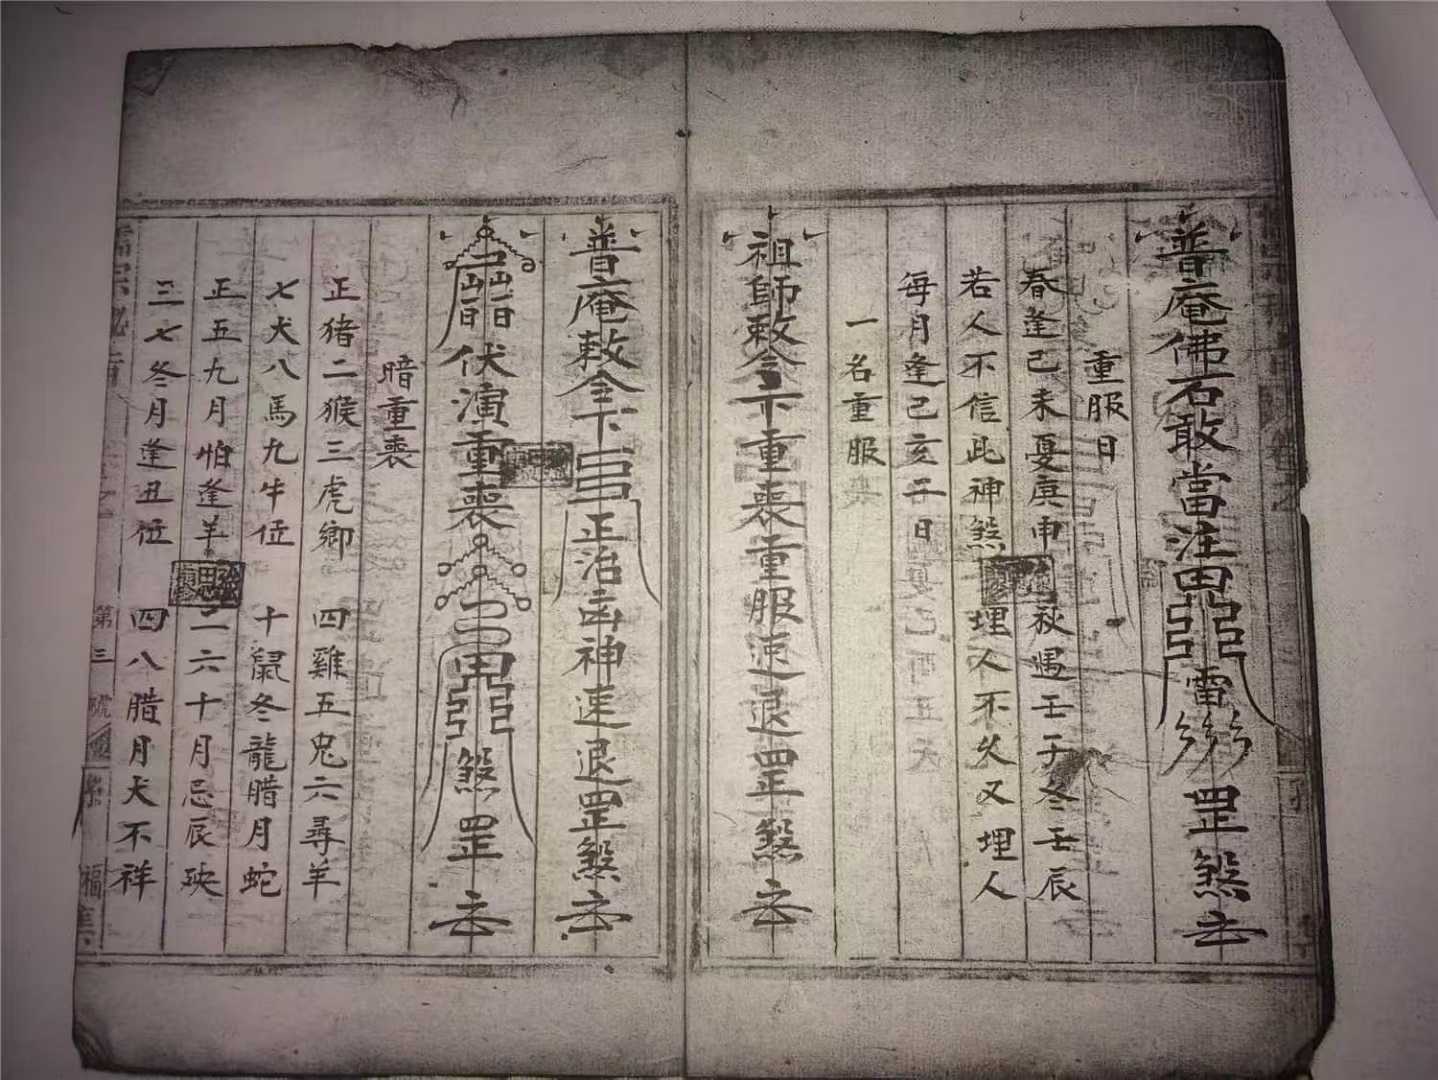 普庵佛石敢當注 雷 罡煞去
重服日
春逢己未夏庚申 秋遇壬子冬壬辰
若人不信此神煞 埋人不久又埋人
每月逢己亥子日
一名重服
祖師敕令下重喪重服速退罡煞去
普庵敕令下 正治凶神速退罡煞去
伏演重喪 煞罡去
暗重喪
正猪二猴三虎鄉 四雞五兔六尋羊
七犬八馬九牛位 十鼠冬龍腊月蛇
正五九月怕逢羊 二六十月忌辰殃
三七冬月逢丑位 四八腊月犬不祥
第三號
福